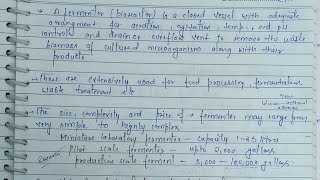 A fermentor (bioreactor) is a closed vessel with adequate
arrangment for aeration, agitation, temp. and pH
control, and drain or overflow vent to remove the waste
biomass of cultured microorganism along with their
products
These are extensively used for food processing, fermentation,
waste treatment etc
The size, complexity and price of a fermenter may range from
very simple to highly complex
Miniature laboratory fermenter - capacity 1-20 litres
Pilot scale fermenters - upto 2,000 gallons
productive scale ferment - 5,000 - 100,000 gallons